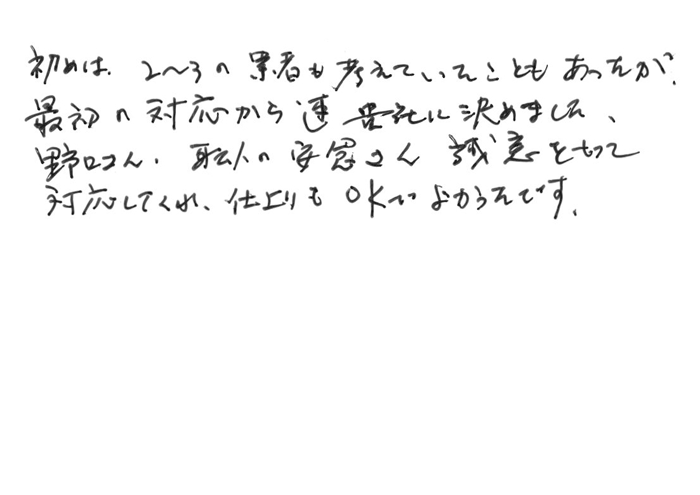 初めは、2〜3の業者も考えていたこともあったが、
最初の対応から速 貴社に決めました、
野口さん、職人の安恩さん 誠意をもって
対応してくれ、仕上りもOKでよかったです。